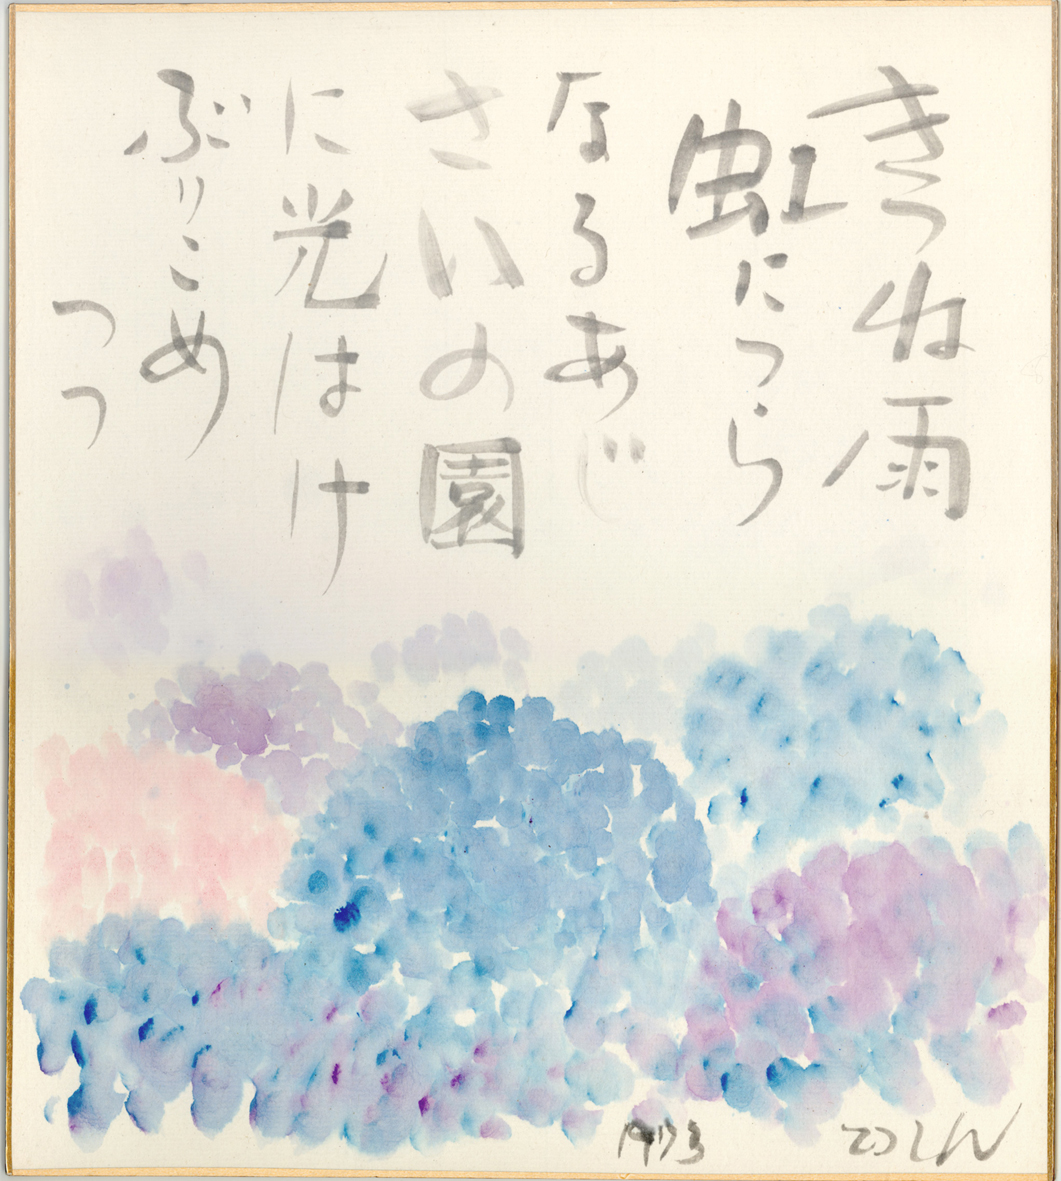 きつね雨
虹につら
なるあじ
さいの園
に光はけ
ぶりこめ
つつ
1973